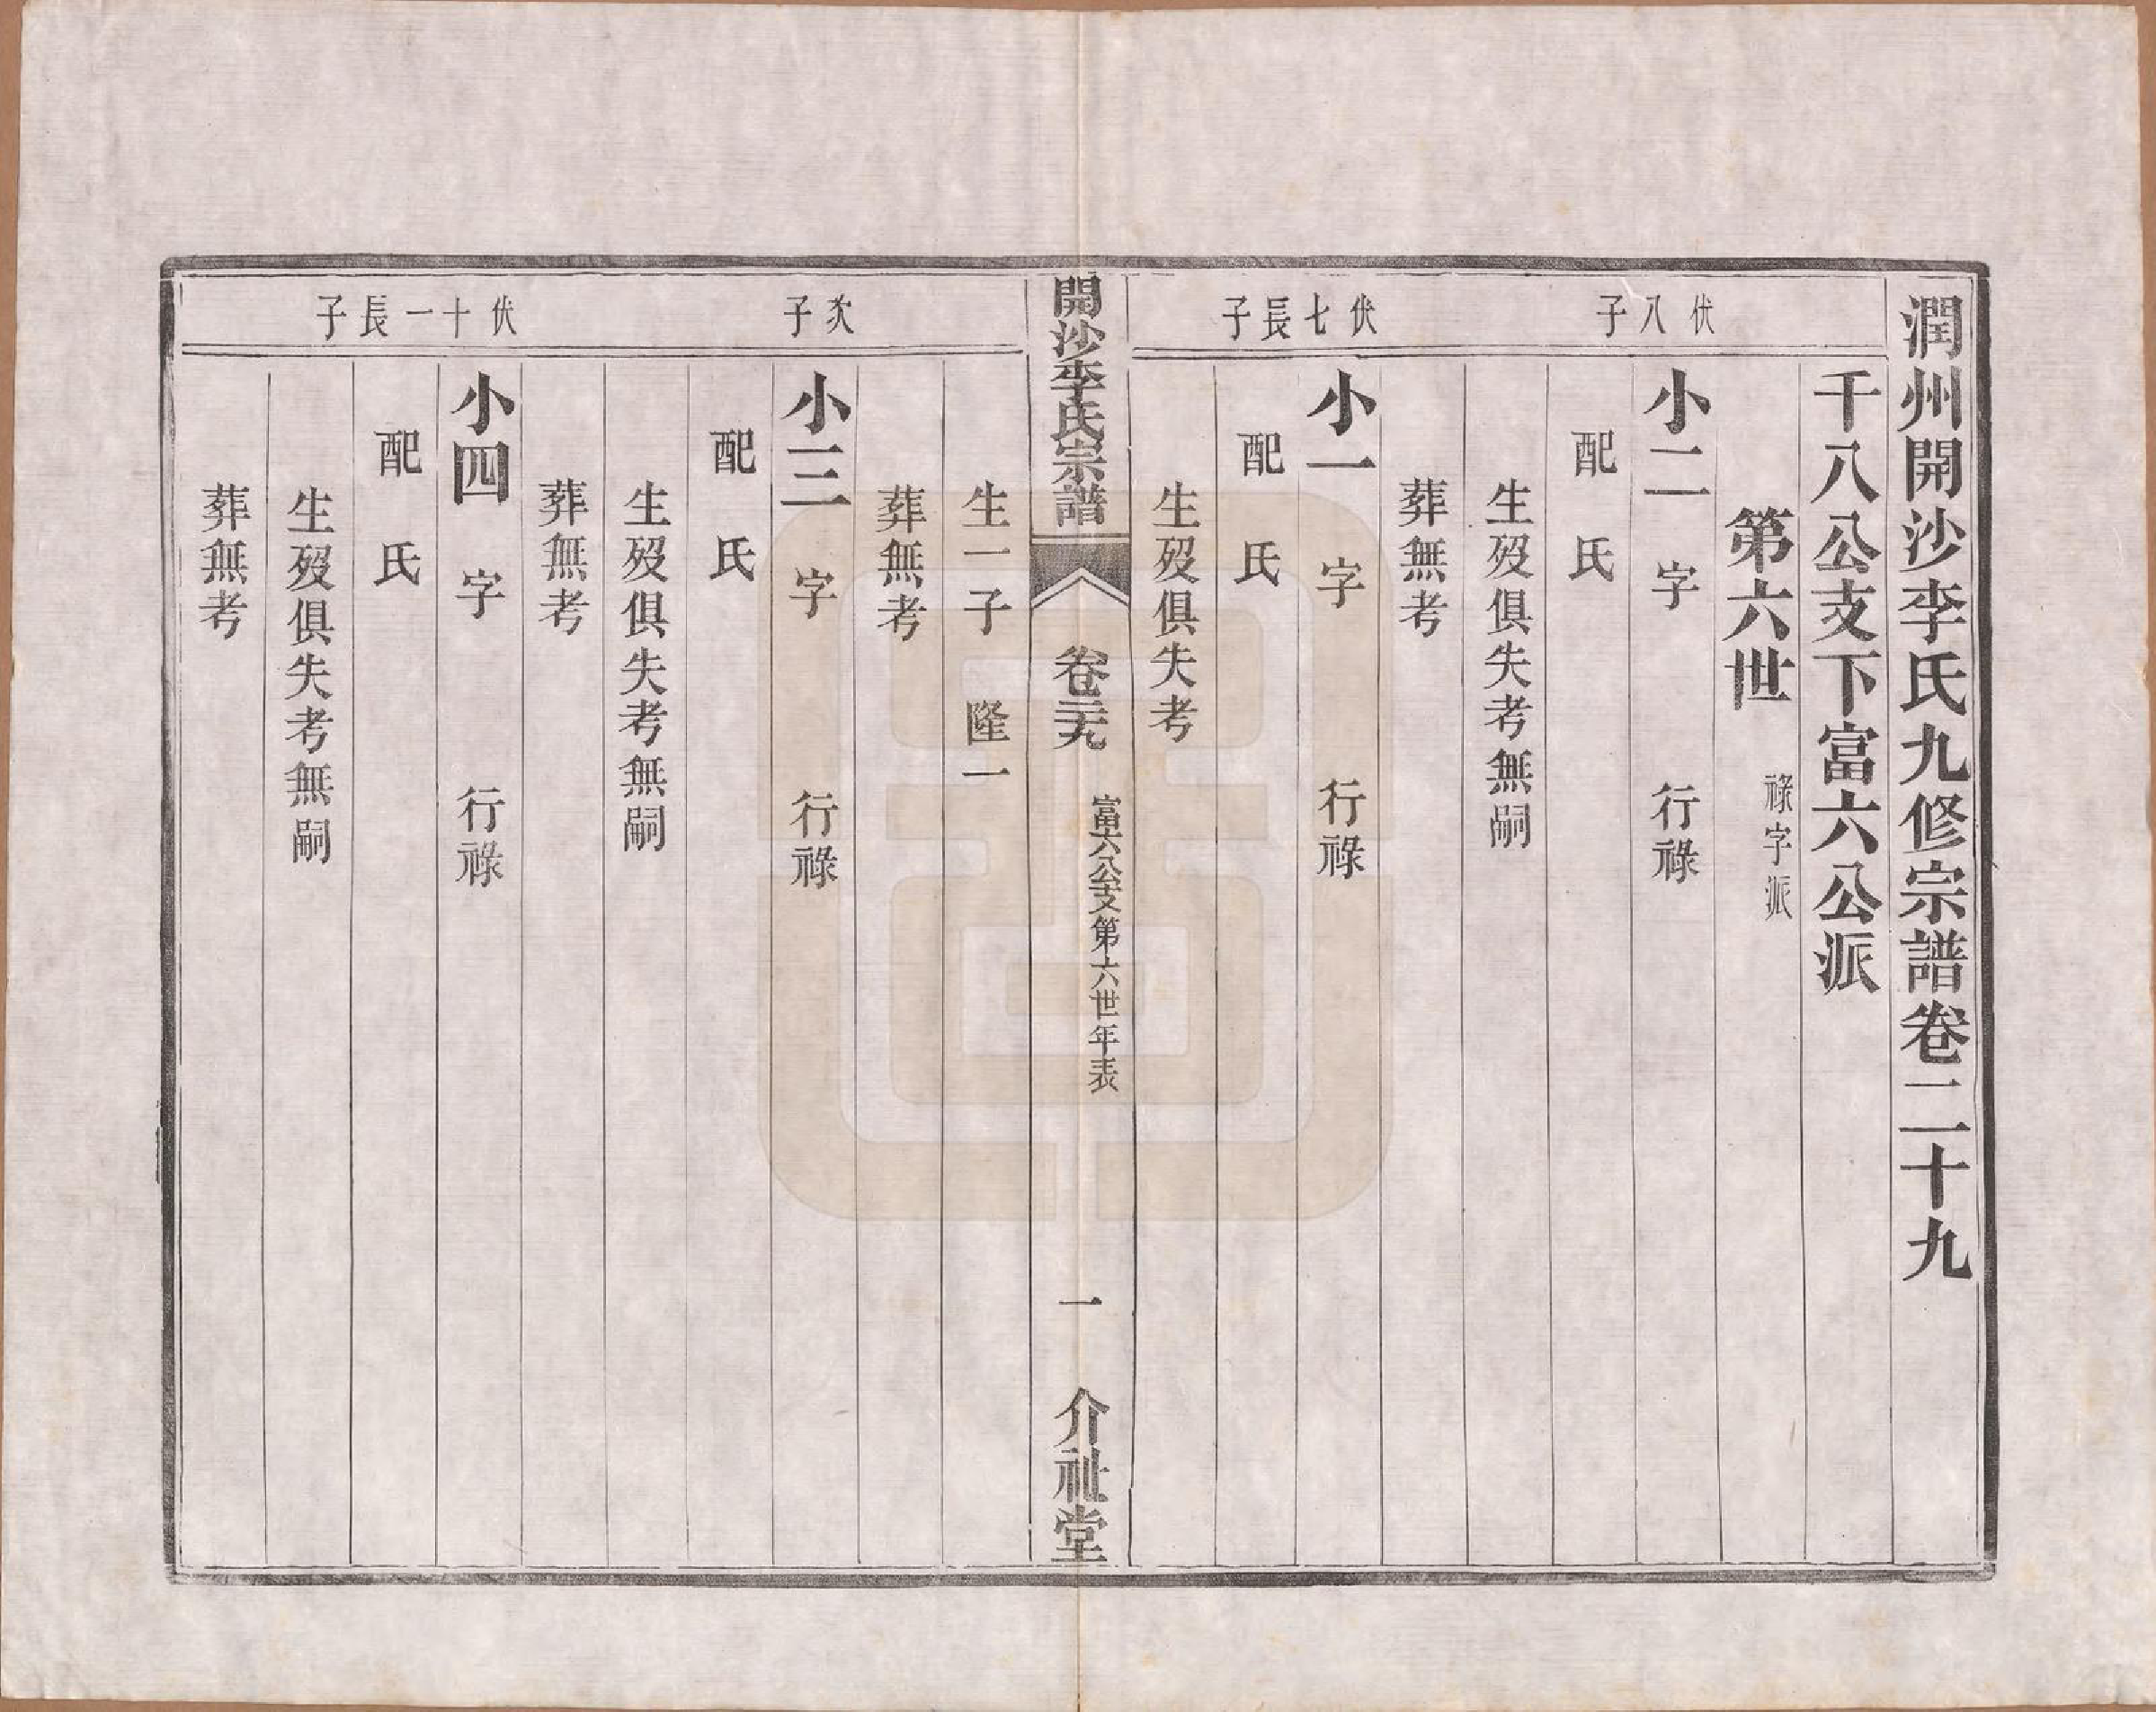 潤州開沙李氏九修宗譜卷二十九
千八公支下富六公派
第六世 祿字派
伏八子
小二 字 行祿
配 氏
生歿俱失考無嗣
葬無考
伏七長子
小一 字 行祿
配 氏
生歿俱失考
開沙李氏宗譜 卷二十九 富六公支第六世年表 一 介祉堂
生一子 隆一
葬無考
次子
小三 字 行祿
配 氏
生歿俱失考無嗣
葬無考
伏十一長子
小四 字 行祿
配 氏
生歿俱失考無嗣
葬無考